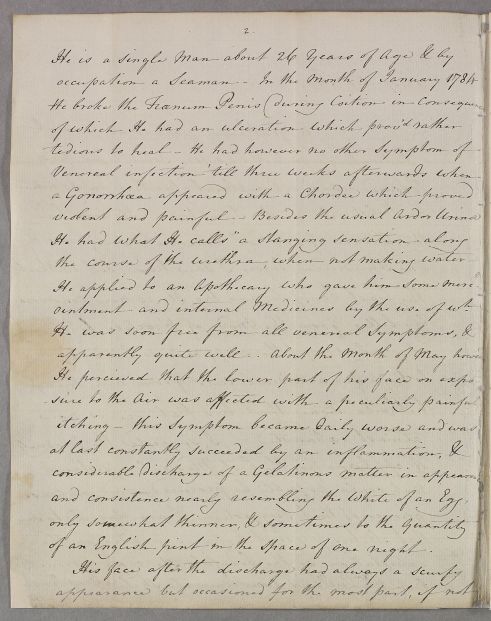 2
He is a single Man about 26 Years of Age & by
occupation a Seaman - In the Month of January 1784
He broke the Frænum Penis (during Coition in Consequence
of which He had an ulceration which prov'd rather
tedious to heal - He had however no other Symptom of
Venereal infection till three weeks afterwards when
a Gonorrhœa appeared with a Chordee which proved
violent and painful - Besides the usual Ardor Urinæ
He had what He calls "a stanging sensation along
the course of the urethra, when not making water
He applied to an Apothecary who gave him some mere
ointment and internal Medicines by the use of wh
He was soon free from all venereal Symptoms, &
apparently quite well - about the Month of May howe
He percieved that the lower part of his face on expo
sure to the Air was affected with a peculiarly painful
itching - this Symptom became daily worse and was
at last constantly succeeded by an inflammation, &
considerable discharge of a Gelatinous matter in appearan
and consistence nearly resembling the White of an Egg,
only somewhat thinner, & sometimes to the Quantity
of an English pint in the space of one night.
His face after the discharge had always a scurfy
appearance but occasioned for the most part, if not